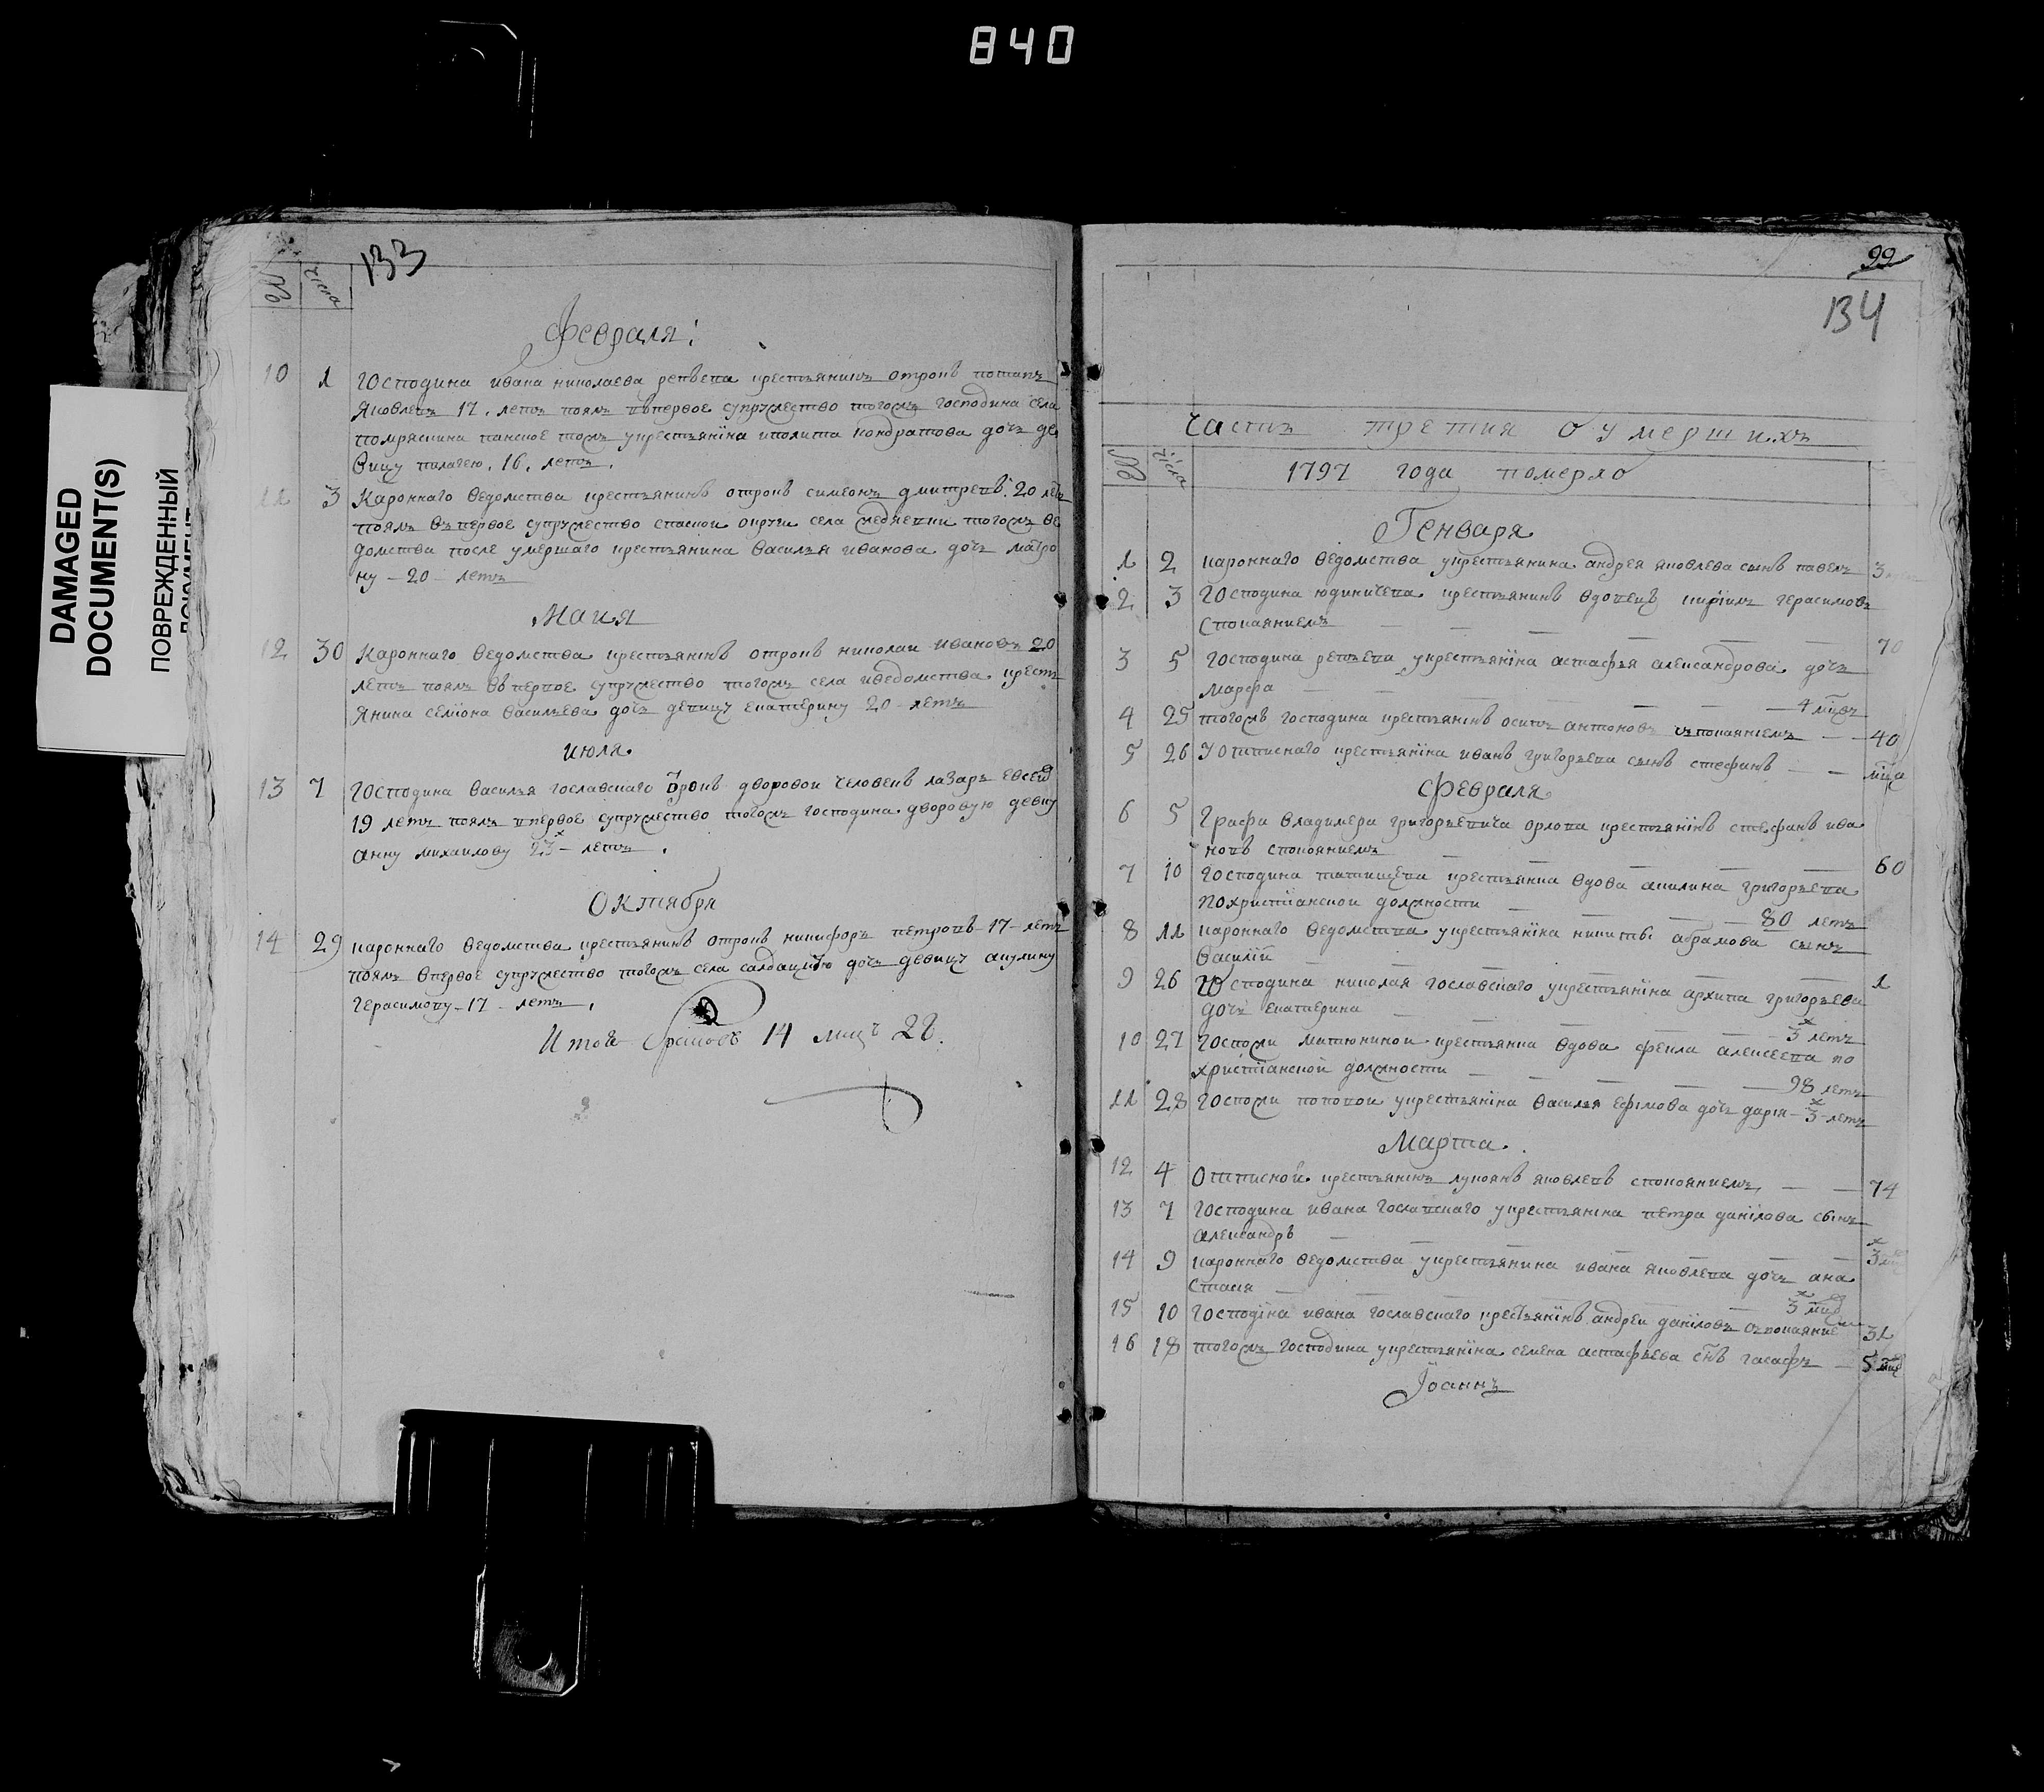 840
DAMAGED
DOCUMENT(S)
ПОВРЕЖДЕННЫЙ
133
№ числа
Февраля:
10 1 господина ивана николаева репьева крестьянинъ отрокъ потапъ
Яковлевъ 17, летъ поялъ впервое супружество тогожъ господина села
ну - 20 - летъ
вицу пелагею, 16, летъ,
11 3 Кароннаго ведомства крестьянинъ отрокъ симеонъ дмитревъ. 20 летъ
поялъ въ первое супружество спаской округи села тогожъ ве
домства после умершаго крестьянина василья иванова дочь матро
Маия
12 30 Каронного ведомства крестьянинъ отрокъ николаи ивановъ 20
летъ поялъ въ первое супружество тогожъ села иведомства крест
янина семiона васильева дочь девицу екатерину 20 летъ
июля.
13 7 господина василья гославскаго дворовои человекъ лазарь евсеев
19 летъ поялъ впервое супружество тогожъ господина дворовую девку
анну михаилову 23 - летъ.
Октября
14 29 кароннаго ведомства крестьянинъ отрокъ никифоръ петровъ - 17 - летъ
поялъ впервое супружество тогожъ села дочь девицу акулину
герасимову - 17 - летъ,
Итого браковъ 14 лицъ 28.
99
134
Часть третия о умерших
№ числа 1797 года померло
Генваря
1 2 кароннаго ведомства укрестьянина андрея яковлева сынъ павелъ 3
2 3 господина юдиничева крестьянинъ вдовецъ кирилъ герасимовъ
спокаяниемъ 70
3 5 господина репьева укрестьянiна астафья александрова дочь
марфа 4 мцовъ
4 25 тогожъ господина крестьянiнъ осипъ антоновъ съпокаянiемъ 40
5 26 Уотписнаго крестьянiна иванъ григорьева сынъ стефанъ мца
Февраля
6 5 Графа владимера григорьевича орлова крестьянiнъ стефанъ ива
новъ спокояниемъ 60
7 10 господина татищева крестьянка вдова акилина григорьева
похристiанскои должности 80 летъ
8 11 кароннаго ведомства укрестьянiна никиты абрамова сынъ
василiй 1
9 26 господина николая гославскаго укрестьянiна архипа григорьева
дочь екатерина 3 летъ
10 27 госпожи матюнинои крестьянка вдова фекла алексеева по
христiанскои должности 98 летъ
11 28 госпожи поповои укрестьянiна василья ефiмова дочь дарiя - 3 - летъ
Марта.
12 4 Отписной крестьянiнъ лукоянъ яковлевъ спокояниемъ, 74
13 7 господина ивана гославскаго укрестьянина петра данiлова сынъ
александръ 3
14 9 кароннаго ведомства укрестьянина ивана яковлева дочь ана
стасия 3 мцо
15 10 господiна ивана гославскаго крестьянiнъ андреи данiловъ съпокаяние 31
16 18 тогожъ господина укрестьянiна семена астафьева снъ гасафъ 5 мцо
Iоаннъ